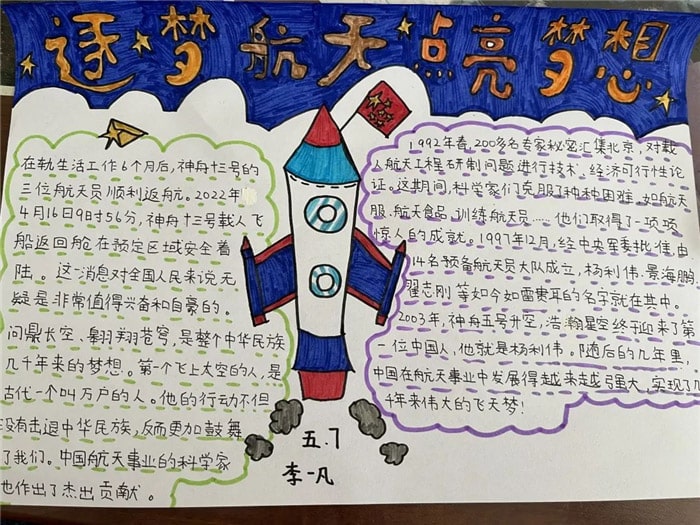 逐梦航天点亮梦想
在轨生活工作6个月后,神舟十三号的
三位航天员顺利返航。2022年
4月16日9时56分,神舟十三号载人飞
船返回舱在预定区域安全着
陆。这一消息对全国人民来说无
疑是非常值得兴奋和自豪的。
问鼎长空,翱翔苍穹,是整个中华民族
几千年来的梦想。第一个飞上太空的人,是
古代一个叫万户的人。他的行动不但
没有击退中华民族,反而更加鼓舞
了我们。中国航天事业的科学家
也作出了杰出贡献。
1992年春,200多名专家秘密汇集北京,对载
人航天工程研制问题进行技术、经济可行性论
证。这期间,科学家们克服了种种困难,如航天
服.航天食品,训练航天员……他们取得了一项项
惊人的成就。1997年12月,经中央军委批准,由
14名预备航天员大队成立,杨利伟.景海鹏.
翟志刚等如今如雷贯耳的名字就在其中。
2003年,神舟五号升空,浩瀚星空终于迎来了第
一位中国人,他就是杨利伟。随后的几年里,
中国在航天事业中发展得越来越强大,实现了几
千年来伟大的飞天梦!
五.7
李一凡